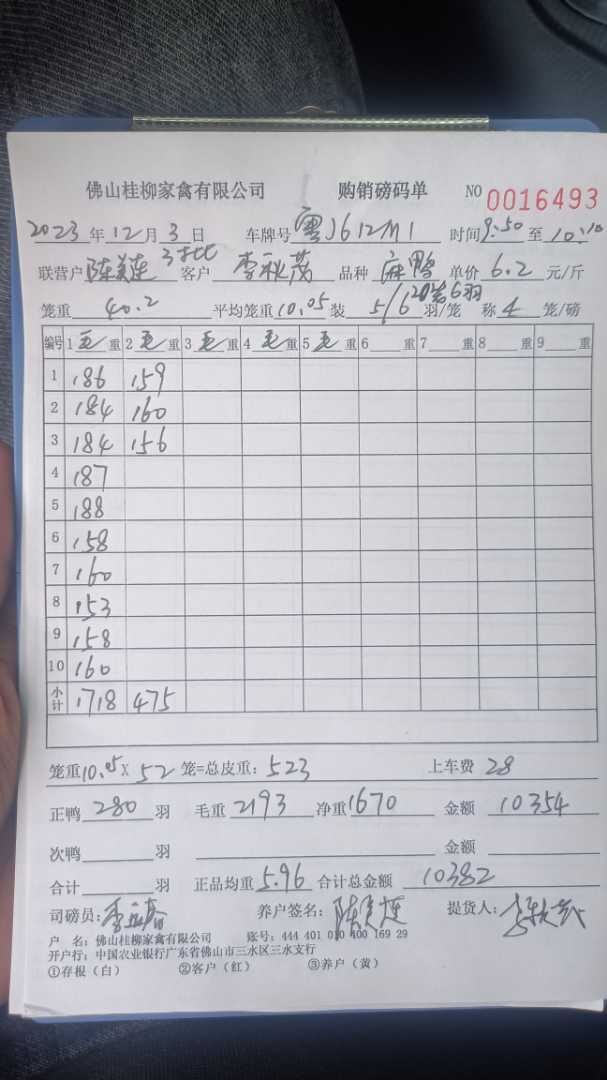 佛山桂柳家禽有限公司 购销磅码单 NO 0016493
2023 年 12 月 3 日 车牌号 粤J612M1 时间 9:50 至 10:10
联营户 陈美莲 3批 客户 李秋茂 品种 麻鸭 单价 6.2 元/斤
20笼6羽
笼重 40.2 平均笼重 10.05 装 5/6 羽/笼 称 4 笼/磅
编号 1 毛 重 2 毛 重 3 毛 重 4 毛 重 5 毛 重 6 重 7 重 8 重 9 重
1 186 159
2 184 160
3 184 156
4 187
5 188
6 158
7 160
8 153
9 158
10 160
小计 1718 475
笼重 10.05 X 52 笼=总皮重: 523 上车费 28
正鸭 280 羽 毛重 2193 净重 1670 金额 10354
次鸭 羽 金额
合计 羽 正品均重 5.96 合计总金额 10382
司磅员: 养户签名: 陈美莲 提货人: 李秋茂
户 名: 佛山桂柳家禽有限公司 账号: 444 401 010 400 169 29
开户行: 中国农业银行广东省佛山市三水区三水支行
①存根(白) ②客户(红) ③养户(黄)